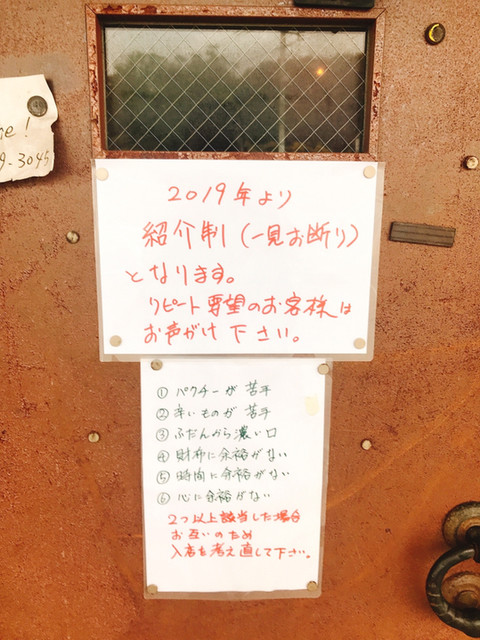 e!
9-3045
2019年より
紹介制(一見お断り)
となります。
リピート要望のお客様は
お声がけ下さい。
① パクチーが苦手
② 辛いものが苦手
③ ふだんから濃い口
④ 財布に余裕がない
⑤ 時間に余裕がない
⑥ 心に余裕がない
2つ以上該当した場合
お互いのため
入店を考え直して下さい。